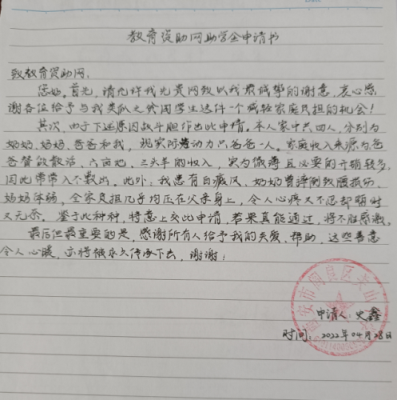 教育资助网助学金申请书
致教育资助网:
您好。首先,请允许我先是向你致以我最诚挚的谢意,衷心感
谢各位给予与我类似之贫困学生这样一个减轻家庭负担的机会!
其次,由于下述原因我斗胆作出此申请。本人家中共四人,分别为
奶奶、爸爸和我,现家劳动力只爸爸一人。家庭收入来源为爸
爸
六亩地、三头羊的收入,实为微薄且必要的开销较多,
因此常常入不敷出。此外,我患有白癜风,奶奶曾摔倒致腰损伤,
全家负担几乎均压在父亲身上,令人心疼又不忍却暂时
又无奈。鉴于此种种,特意上交此申请,若果真能通过,将不胜感激。
最后但最重要的是,感谢所有人给予我的关爱、帮助,这些善意
令人心暖,亦将做永久传承下去,谢谢!
申请人:史鑫
时间:2022年04月28日